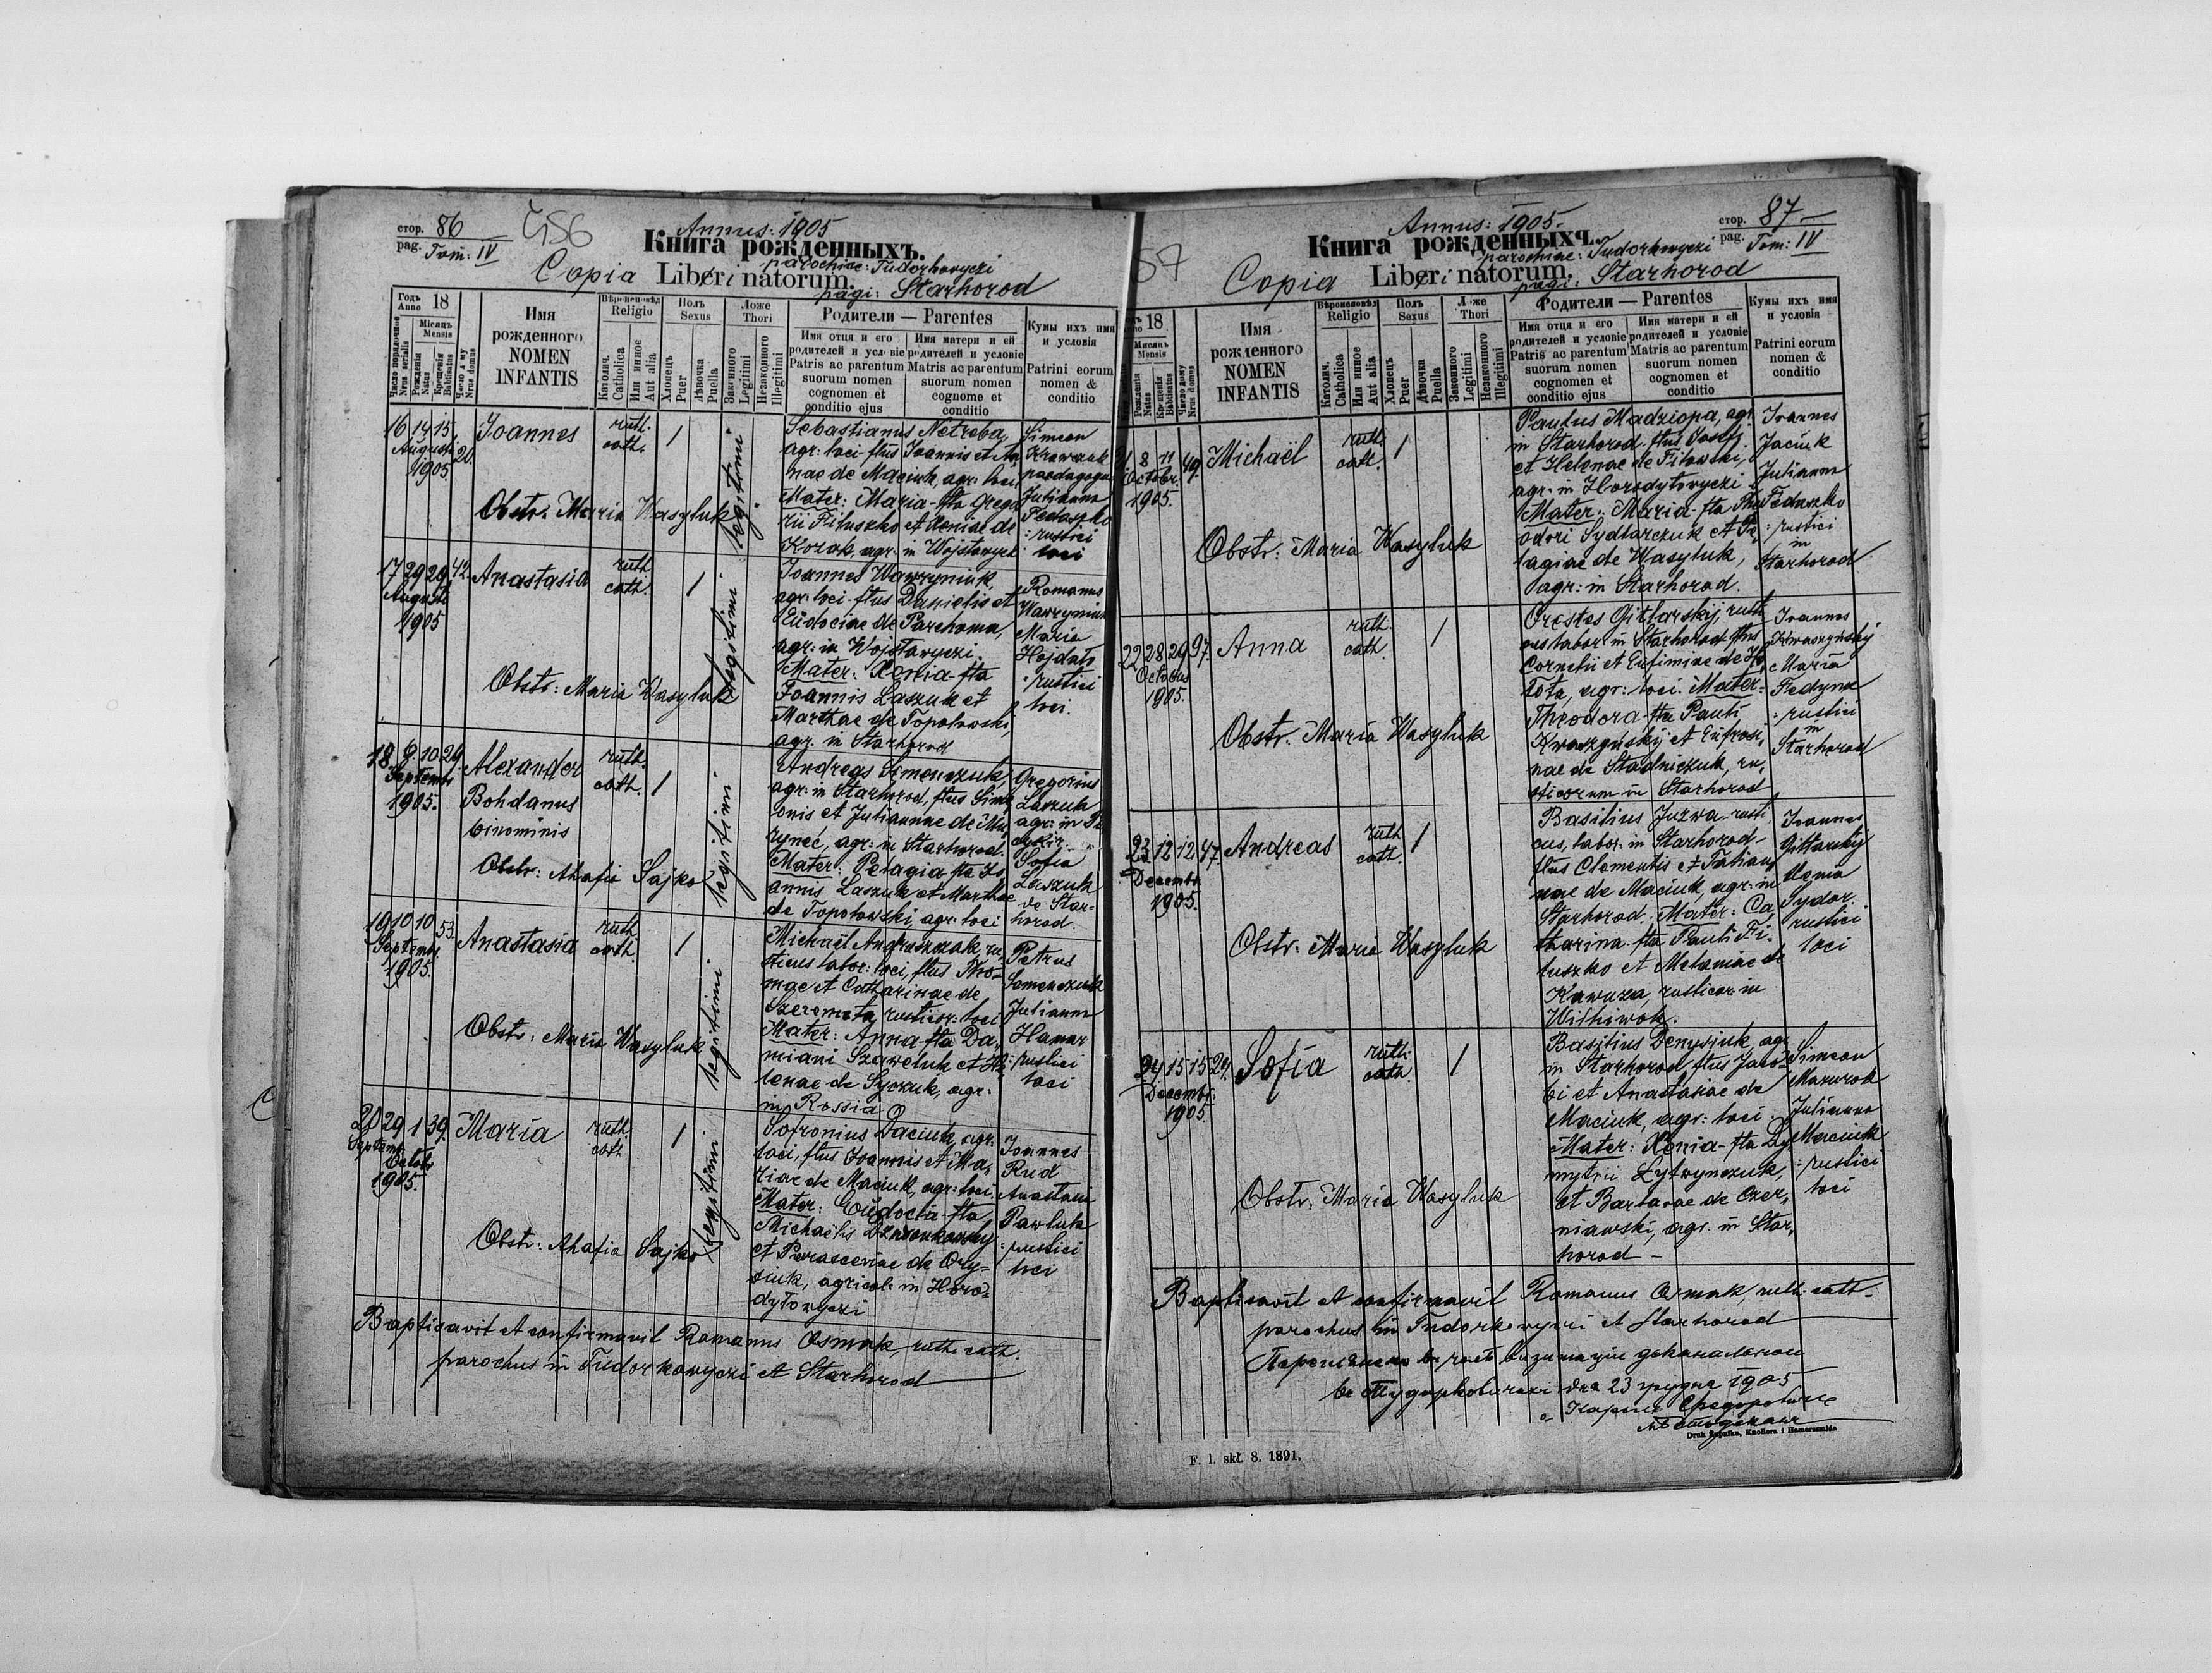 стор. 86
pag. Tom: IV
Annus: 1905
Книга рожденныхъ.
parochiae: Tudorkowyczi
Copia Liberi natorum.
pagi: Starhorod
Годъ Anno 18
Число порядочное Nrus serialis
Мѣсяцъ Mensis
Рожденія Natus
Крещенія Babtisatus
Число дому Nrus domus
Имя
рожденного
NOMEN
INFANTIS
Religio
Католич. Catholica
Или инное Aut alia
Полъ
Sexus
Хлопецъ Puer
Дѣвочка Puella
Ложе
Thori
Законного Legitimi
Незаконного Illegitimi
Родители — Parentes
Имя отца и его
родителей и условіе
Patris ac parentum
suorum nomen
cognomen et
conditio ejus
Имя матери и ей
родителей и условіе
Matris ac parentum
suorum nomen
cognome et
conditio
Кумы ихъ имя
и условія
Patrini eorum
nomen &
conditio
16 14 15 20.
Augusti
1905
Joannes
ruth.
cath.
1
legitimi
Obstr: Maria Wasyluk
Sebastianus Netreba,
agr: loci flus Joannis et An,
nae de Maciuk, agr: loci,
Mater: Maria-fta Grego
rii Filuszko et Xeniae de
Kozak, agr: in Wojslawycz
Simeon
Krawczuk
paedagogus
Julianna
Fedaszko
: rustici
loci
17 29 29 42.
Augusti
1905
Anastasia
ruth
cath.
1
legitimi
Obstr: Maria Wasyluk
Joannes Wawryniuk
agr: loci-flus Danielis et
Eudociae de Parchoma,
agr: in Wojslawyczi.
Mater: Xenia-fta
Joannis Laszuk et
Marthae de Topolowski,
agr. in Starhorod
Romanus
Wawryniuk
Maria
Hojdal
: rustici
loci.
18. 8. 10 29.
Septembr
1905.
Alexander
Bohdanus
binominis
ruth.
cath.
1
legitimi
Obstr: Ahafia Sajko
Andreas Semenczuk,
agr: in Starhorod, flus Sime
onis et Juliannae de Mu
ryneć, agr: in Starhorod.
Mater: Pelagia-fta Jo
annis Laszuk et Marthae
de Topolowski, agr: loci
Gregorius
Laszuk
agr: in
Sofia
Laszuk
de Star-
horod.
19 10 10 53.
Septembr
1905.
Anastasia
ruth
cath.
1
legitimi
Obstr: Maria Wasyluk
Michaël Andruszczak, ru,
sticus labor: loci, flus Tho-
mae et Catharinae de
Szeremeta, rusticor: loci
Mater: Anna-fta Da,
miani Szaweluk et He
lenae de Syczuk, agr:
in Rossia
Petrus
Semenczuk
Julianna
Hamar
: rustici
loci
20 29 1 39.
Septembr
Octobr
1905.
Maria
ruth
cath
1
legitimi
Obstr: Ahafia Sajko
Sofronius Daciuk, agr:
loci, flus Joannis et Ma,
riae de Maciuk, agr: loci,
Mater: Eudocia-fta
Michaëlis
et Parasceviae de Oly=
siuk, agricol: in Horo=
dyłowyczi
Joannes
Rud
Anastasia
Pawluk
: rustici
loci
Baptisavit et confirmavit Romanus Osmak, ruth. cath.
parochus in Tudorkowyczi et Starhorod
стор. 87
pag. Tom: IV
57
Annus: 1905.
Книга рожденныхъ.
parochiae: Tudorkowyczi
Copia Liberi natorum.
pagi: Starhorod
18
Мѣсяцъ
Mensis
Рожденія Natus
Крещенія Babtisatus
Число дому Nrus domus
Имя
рожденного
NOMEN
INFANTIS
Religio
Католич. Catholica
Или инное Aut alia
Полъ
Sexus
Хлопецъ Puer
Дѣвочка Puella
Thori
Законного Legitimi
Незаконного Illegitimi
Родители — Parentes
Имя отца и его
родителей и условіе
Patris ac parentum
suorum nomen
cognomen et
conditio ejus
Имя матери и ей
родителей и условіе
Matris ac parentum
suorum nomen
cognomen et
conditio
Кумы ихъ имя
и условія
Patrini eorum
nomen &
conditio
21 8 11 49.
Octobr.
1905.
Michaël
ruth
cath.
1
Obstr: Maria Wasyluk
Paulus Madziopa, agr.
in Starhorod. flus Josefi
et Helenae de Filowski,
agr: in Horodyłowyczi
Mater: Maria-fta The
odori Sydlarczuk et Pe,
lagiae de Wasyluk,
agr: in Starhorod.
Joannes
Jaciuk
Julianna
Fedaszko
: rustici
in
Starhorod
22 28 29 97.
Octobris
1905.
Anna
ruth.
cath.
1
Obstr: Maria Wasyluk
Orestes Gitlarskij, rusti
cus labor: in Starhorod-flus
Cornelii et Eufimiae de Ho,
łota, agr: loci. Mater:
Theodora-fta Pauli
Kwaszynskij et Eufrosi,
nae de Stadniczuk, ru,
sticorum in Starhorod
Joannes
Kwaszynskij
Maria
Fedyna
: rustici
in
Starhorod
23. 12 12 47.
Decembr.
1905.
Andreas
ruth
cath.
1
Obstr: Maria Wasyluk
Basilius Juzwa-rusti,
cus, labor: in Starhorod-
flus Clementis et Tatian,
nae de Maciuk, agr: in
Starhorod. Mater: Ca
tharina-fta Pauli Fi-
luszko et Melaniae de
Kawuza, rusticor: in
Joannes
Gitlarskij
Sydor.
rustici
loci
24. 15 15 29.
Decembr:
1905.
Sofia
ruth:
cath.
1
Obstr: Maria Wasyluk
Basilius Denysiuk, agr
in Starhorod, flus Jaco-
bi et Anastasiae de
Maciuk, agr: loci.
Mater: Xenia-fta Dy
mytrii Lytwynczuk,
et Barbarae de Czer,
niawski, agr. in Star,
horod -
Simeon
Mazurok
Julianna
Maciuk
: rustici
loci
Baptisavit et confirmavit Romanus Osmak, ruth: cath-
parochus in Tudorkowyczi et Starhorod
дня 23 грудня 1905
F. l. skł. 8. 1891.